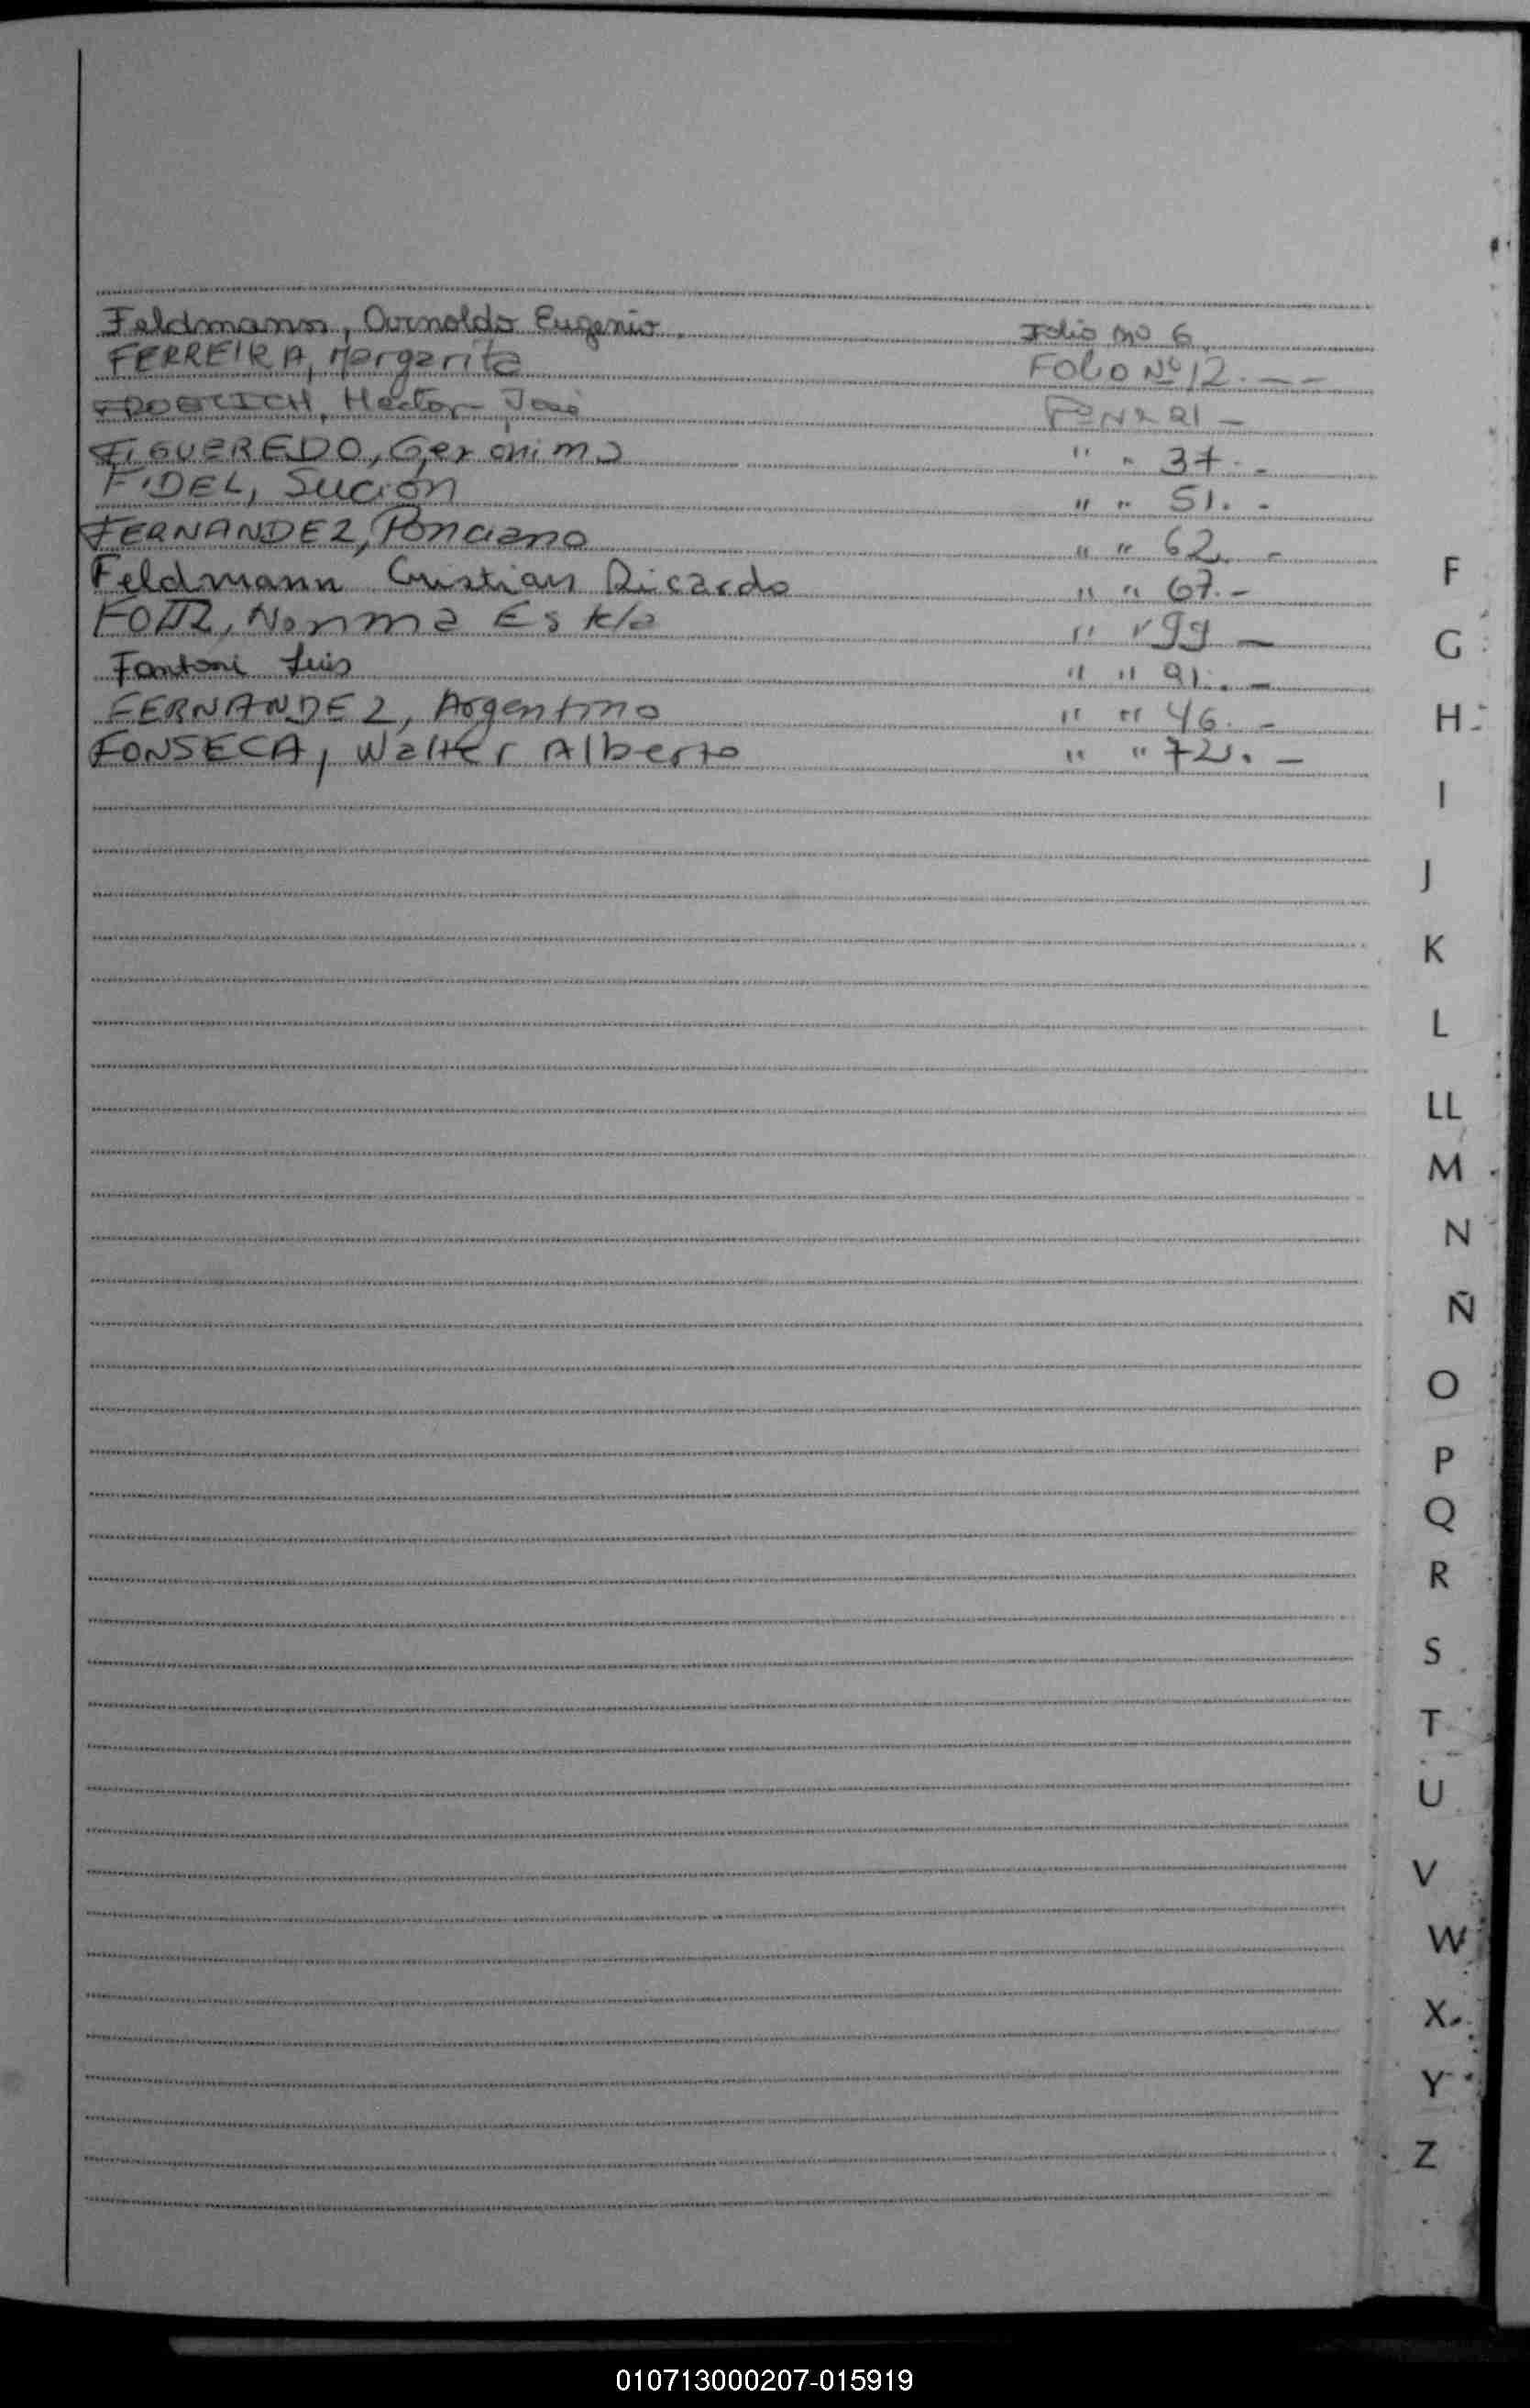 Feldmann, Arnoldo Eugenio. Folio no 6
FERREIRA, Margarita FOLIO Nº 12. - -
Hector José Fº Nº 21 -
FIGUEREDO, Geronimo " " 37. -
FIDEL, Sución " " 51. -
FERNANDEZ, Ponciano " " 62. -
Feldmann Cristian Ricardo " " 67. -
Norma " " 99 -
Fantoni Luis " " 91. -
FERNANDEZ, Argentino " " 46. -
FONSECA, Walter Alberto " " 72. -
F
G
H
I
J
K
L
LL
M
N
Ñ
O
P
Q
R
S
T
U
V
W
X
Y
Z
010713000207-015919